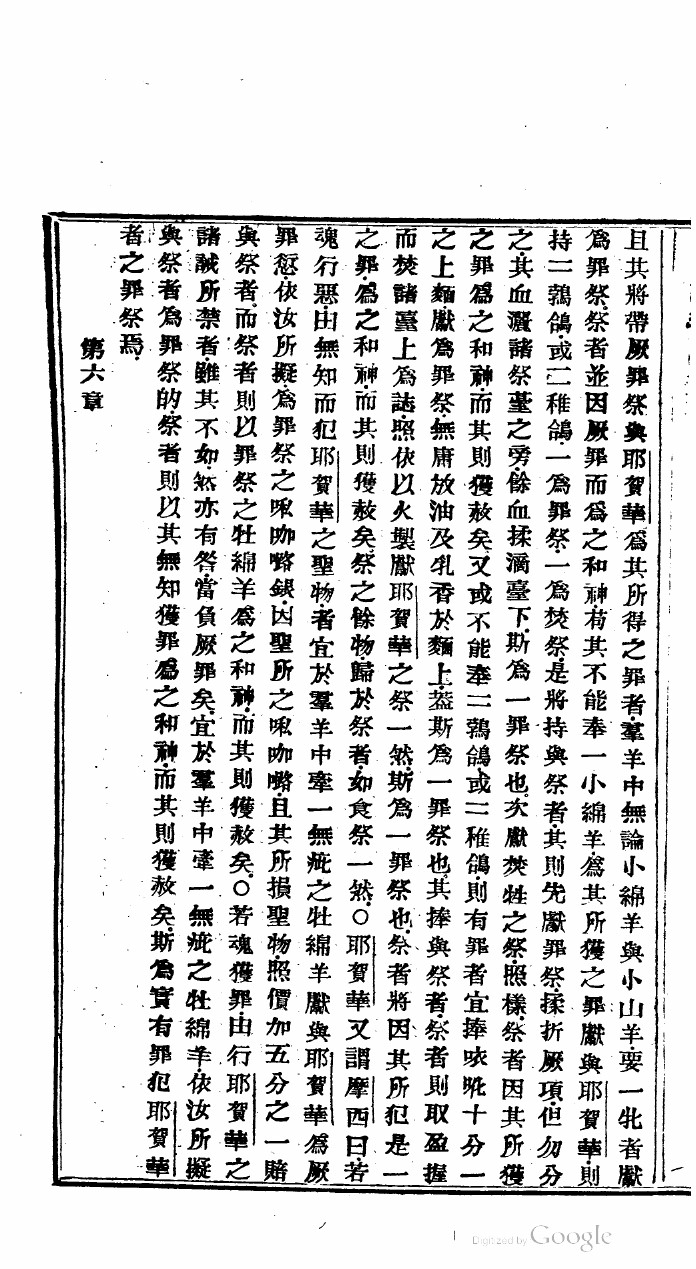 且其將帶厥罪祭與耶賀華爲其所得之罪者羣羊中無論小綿羊與小山羊要一牝者獻
爲罪祭祭者並因厥罪而爲之和神苟其不能奉一小綿羊爲其所獲之罪獻與耶賀華則
持二鶉鴿或二稚鴿一爲罪祭一爲焚祭是將持與祭者其則先獻罪祭揉折厥項但勿分
之其血灑諸祭臺之旁餘血揉滴臺下斯爲一罪祭也次獻焚牲之祭照樣祭者因其所獲
之罪爲之和神而其則獲赦矣又或不能奉二鶉鴿或二稚鴿則有罪者宜捧咴𠰷十分一
之上麵獻爲罪祭無庸放油及乳香於麵上葢斯爲一罪祭也其捧與祭者祭者則取盈握
而焚諸臺上爲誌照依以火製獻耶賀華之祭一然斯爲一罪祭也祭者將因其所犯是一
之罪爲之和神而其則獲赦矣祭之餘物歸於祭者如食祭一然〇耶賀華又謂摩西曰若
魂行惡由無知而犯耶賀華之聖物者宜於羣羊中牽一無疵之牡綿羊獻與耶賀華爲厥
罪愆依汝所擬爲罪祭之㖠咖嚕銀因聖所之㖠咖嚕且其所損聖物照價加五分之一賠
與祭者而祭者則以罪祭之牡綿羊爲之和神而其則獲赦矣〇若魂獲罪由行耶賀華之
諸誡所禁者雖其不如然亦有咎當負厥罪矣宜於羣羊中牽一無疵之牡綿羊依汝所擬
與祭者爲罪祭的祭者則以其無知獲罪爲之和神而其則獲赦矣斯爲實有罪犯耶賀華
者之罪祭焉
第六章
Digitized by Google